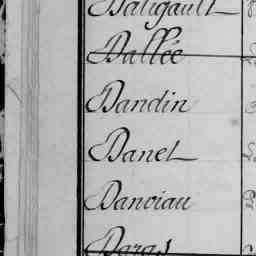 Daligault
Dallée
Dandin
Danet
Danviau
Daras